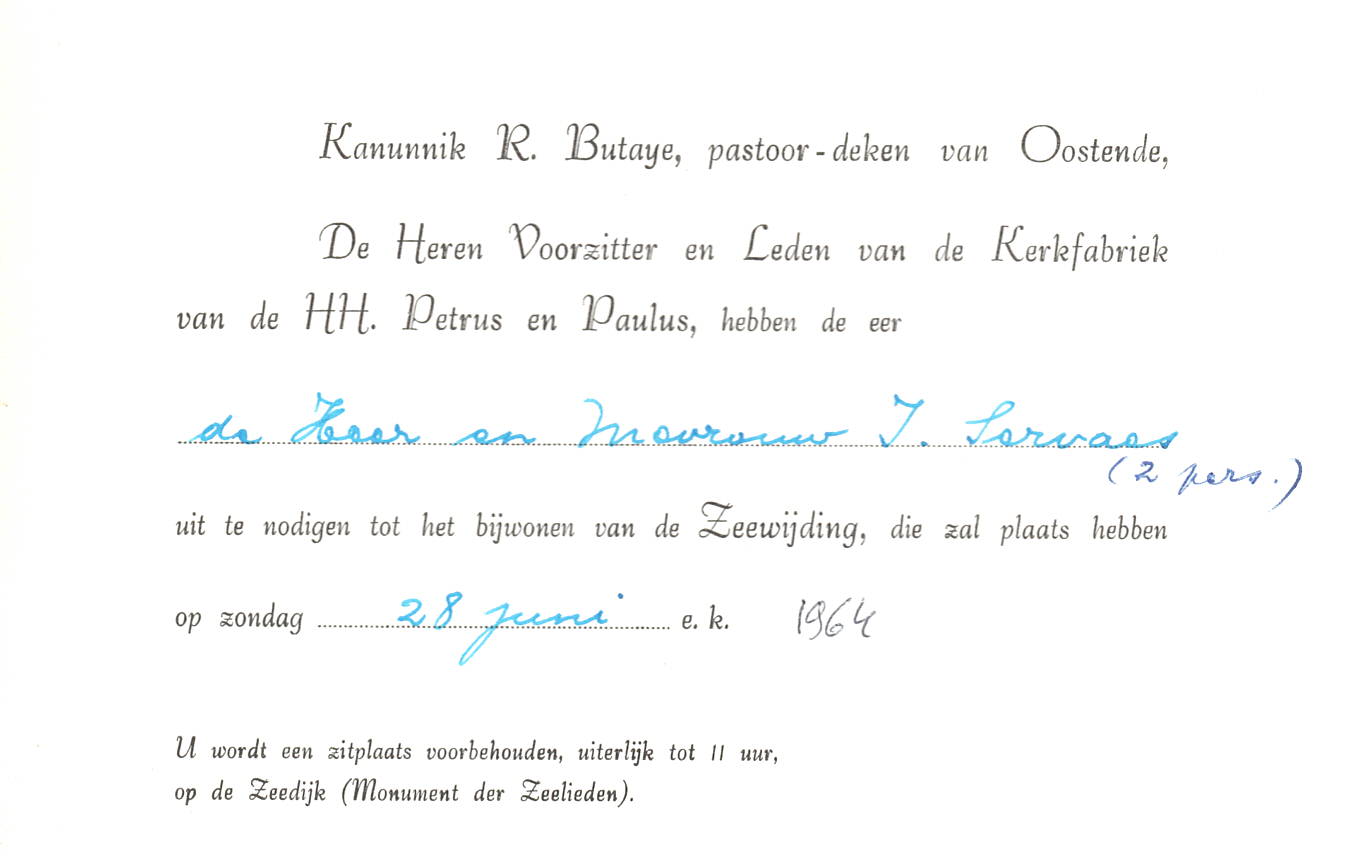 Kanunnik R. Butaye, pastoor-deken van Oostende,
De Heren Voorzitter en Leden van de Kerkfabriek
van de HH. Petrus en Paulus, hebben de eer
de Heer en Mevrouw J. Servaes
(2 pers.)
uit te nodigen tot het bijwonen van de Zeewijding, die zal plaats hebben
op zondag 28 juni e. k. 1964
U wordt een zitplaats voorbehouden, uiterlijk tot 11 uur,
op de Zeedijk (Monument der Zeelieden).